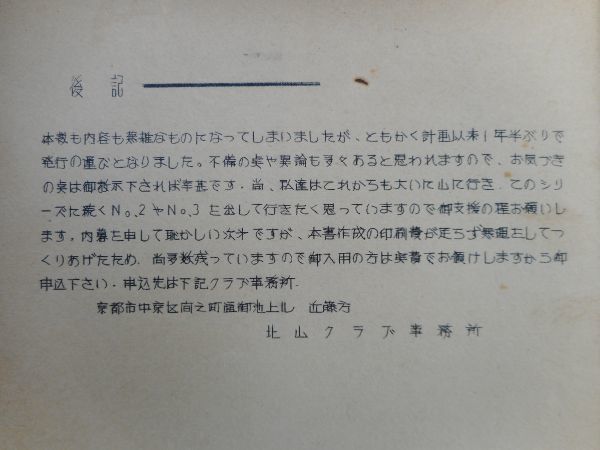 後記
本数も内容も雑なものになってしまいましたが、ともかく計画以来1年半ぶりで
発行の運びとなりました。不備の点や異論も多々あると思われますので、お気づき
の点は御教示下されば幸甚です。尚、私達はこれからも大いに山に行き、このシリ
ーズに続くNo.2やNo.3を出して行きたく思っていますので御支援の程お願いし
ます。内幕を申して恥かしい次才ですが、本書作成の印刷費が足らず無理をしてつ
くりあげたため、尚多数残っていますので御入用の方は実費でお頒けしますから御
申込下さい。申込先は下記クラブ事務所.
京都市中京区両之町通御池上ル 近藤方
北山クラブ事務所